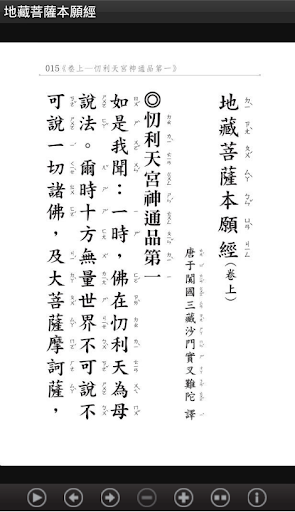 地藏菩薩本願經
015《卷上—忉利天宮神通品第一》
地藏菩薩本願經(卷上)
唐于闐國三藏沙門實叉難陀 譯
◎忉利天宮神通品第一
如是我聞：一時，佛在忉利天為母
說法。爾時十方無量世界不可說不
可說一切諸佛，及大菩薩摩訶薩，